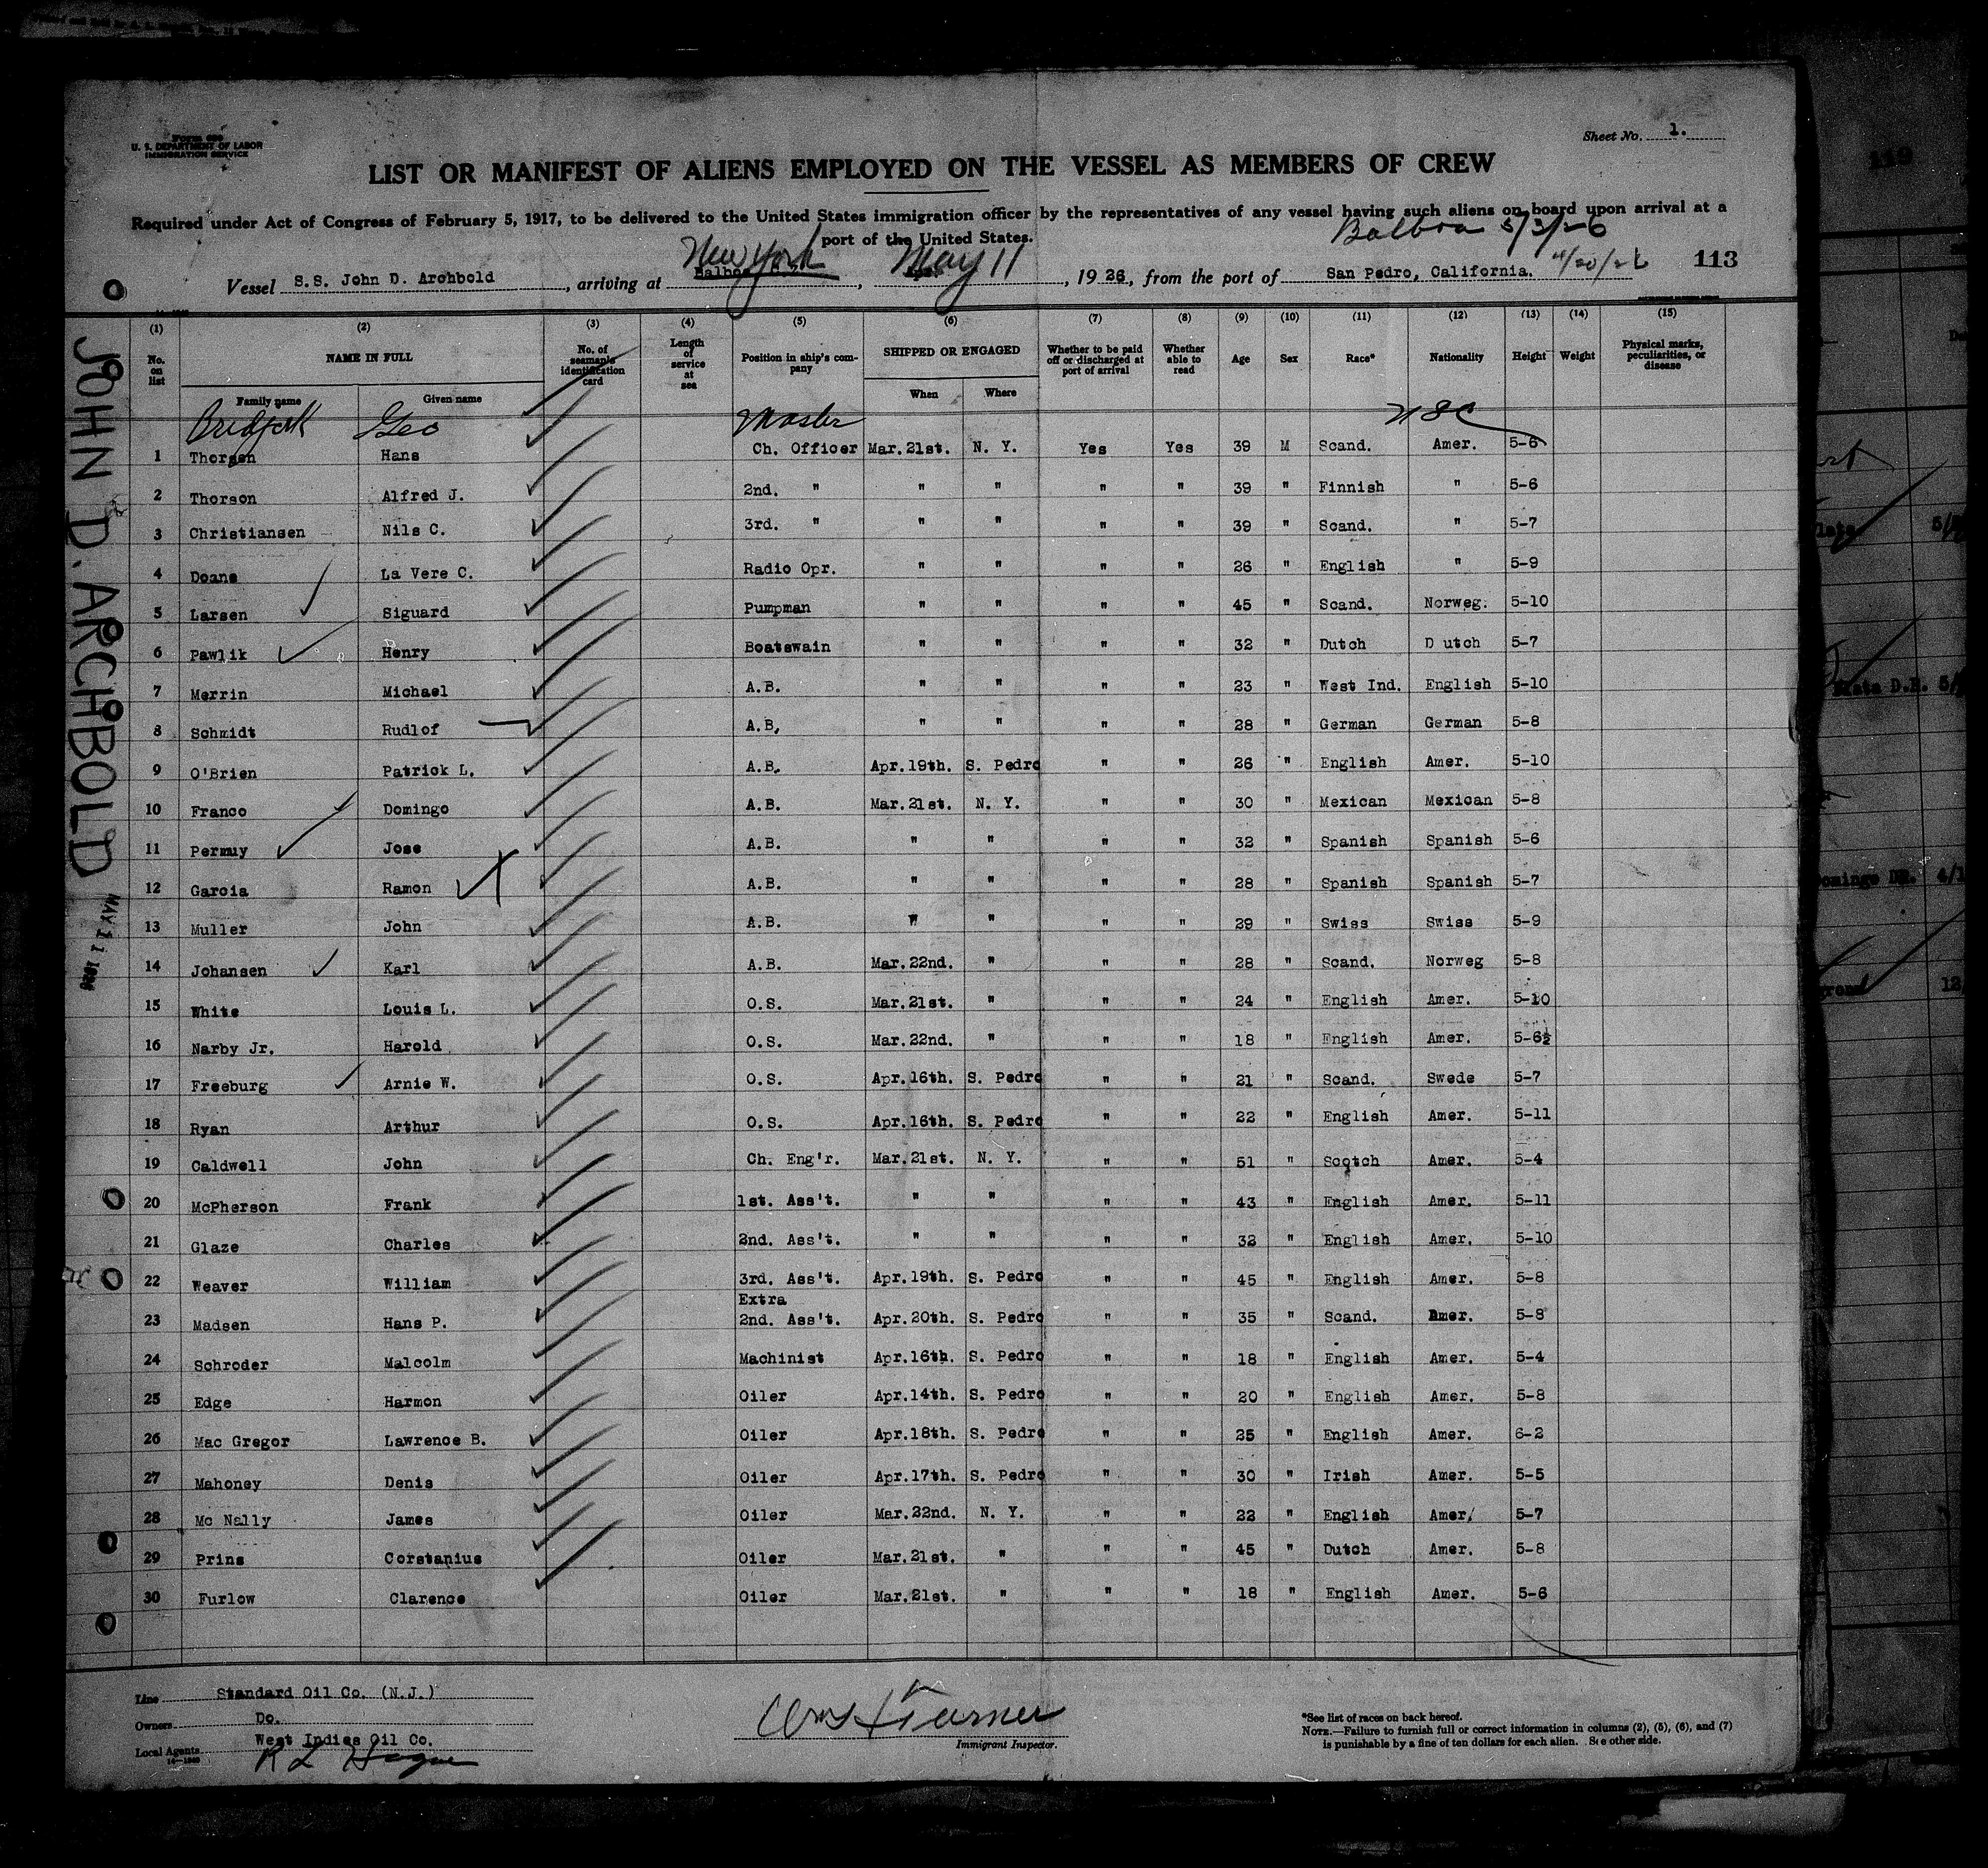 Form 680
U. S. DEPARTMENT OF LABOR
IMMIGRATION SERVICE
Sheet No. 1.
LIST OR MANIFEST OF ALIENS EMPLOYED ON THE VESSEL AS MEMBERS OF CREW
Required under Act of Congress of February 5, 1917, to be delivered to the United States immigration officer by the representatives of any vessel having such aliens on board upon arrival at a
port of the United States.
Balboa 5/3/26
New York May 11
Vessel S.S. John D. Archbold, arriving at Balboa, 1926, from the port of San Pedro, California. 4/20/26 113
(1) (2) (3) (4) (5) (6) (7) (8) (9) (10) (11) (12) (13) (14) (15)
No. on list NAME IN FULL No. of seaman's identification card Length of service at sea Position in ship's company SHIPPED OR ENGAGED Whether to be paid off or discharged at port of arrival Whether able to read Age Sex Race* Nationality Height Weight Physical marks, peculiarities, or disease
Family name Given name When Where
Geo Master USC
1 Thorsen Hans Ch. Officer Mar. 21st. N. Y. Yes Yes 39 M Scand. Amer. 5-6
2 Thorson Alfred J. 2nd. " " " " " 39 " Finnish " 5-6
3 Christiansen Nils C. 3rd. " " " " " 39 " Scand. " 5-7
4 Doane La Vere C. Radio Opr. " " " " 26 " English " 5-9
5 Larsen Siguard Pumpman " " " " 45 " Scand. Norweg. 5-10
6 Pawlik Henry Boatswain " " " " 32 " Dutch D utch 5-7
7 Merrin Michael A.B. " " " " 23 " West Ind. English 5-10
8 Schmidt Rudlof A.B, " " " " 28 " German German 5-8
9 O'Brien Patrick L. A.B. Apr.19th. S. Pedro " " 26 " English Amer. 5-10
10 Franco Domingo A.B. Mar.21st. N. Y. " " 30 " Mexican Mexican 5-8
11 Permuy Jose A.B. " " " " 32 " Spanish Spanish 5-6
12 Garcia Ramon A.B. " " " " 28 " Spanish Spanish 5-7
13 Muller John A.B. " " " " 29 " Swiss Swiss 5-9
14 Johansen Karl A.B. Mar.22nd. " " " 28 " Scand. Norweg 5-8
15 White Louis L. O.S. Mar.21st. " " " 24 " English Amer. 5-10
16 Narby Jr. Harold O.S. Mar.22nd. " " " 18 " English Amer. 5-6½
17 Freeburg Arnie W. O.S. Apr.16th. S. Pedro " " 21 " Scand. Swede 5-7
18 Ryan Arthur O.S. Apr.16th. S. Pedro " " 22 " English Amer. 5-11
19 Caldwell John Ch. Eng'r. Mar.21st. N. Y. " " 51 " Scotch Amer. 5-4
20 McPherson Frank 1st. Ass't. " " " " 43 " English Amer. 5-11
21 Glaze Charles 2nd. Ass't. " " " " 32 " English Amer. 5-10
22 Weaver William 3rd. Ass't. Apr.19th. S. Pedro " " 45 " English Amer. 5-8
Extra
23 Madsen Hans P. 2nd. Ass't. Apr.20th. S. Pedro " " 35 " Scand. Amer. 5-8
24 Schroder Malcolm Machinist Apr.16th. S. Pedro " " 18 " English Amer. 5-4
25 Edge Harmon Oiler Apr.14th. S. Pedro " " 20 " English Amer. 5-8
26 Mac Gregor Lawrence B. Oiler Apr.18th. S. Pedro " " 25 " English Amer. 6-2
27 Mahoney Denis Oiler Apr.17th. S. Pedro " " 30 " Irish Amer. 5-5
28 Mc Nally James Oiler Mar.22nd. N. Y. " " 22 " English Amer. 5-7
29 Prins Corstanius Oiler Mar.21st. " " " 45 " Dutch Amer. 5-8
30 Furlow Clarence Oiler Mar.21st. " " " 18 " English Amer. 5-6
Line Standard Oil Co. (N.J.)
Owners Do.
Local Agents West Indies Oil Co.
R L Hague
Wm H Turner
Immigrant Inspector.
*See list of races on back hereof.
NOTE.—Failure to furnish full or correct information in columns (2), (5), (6), and (7)
is punishable by a fine of ten dollars for each alien. See other side.
JOHN D. ARCHBOLD
MAY 11 1926